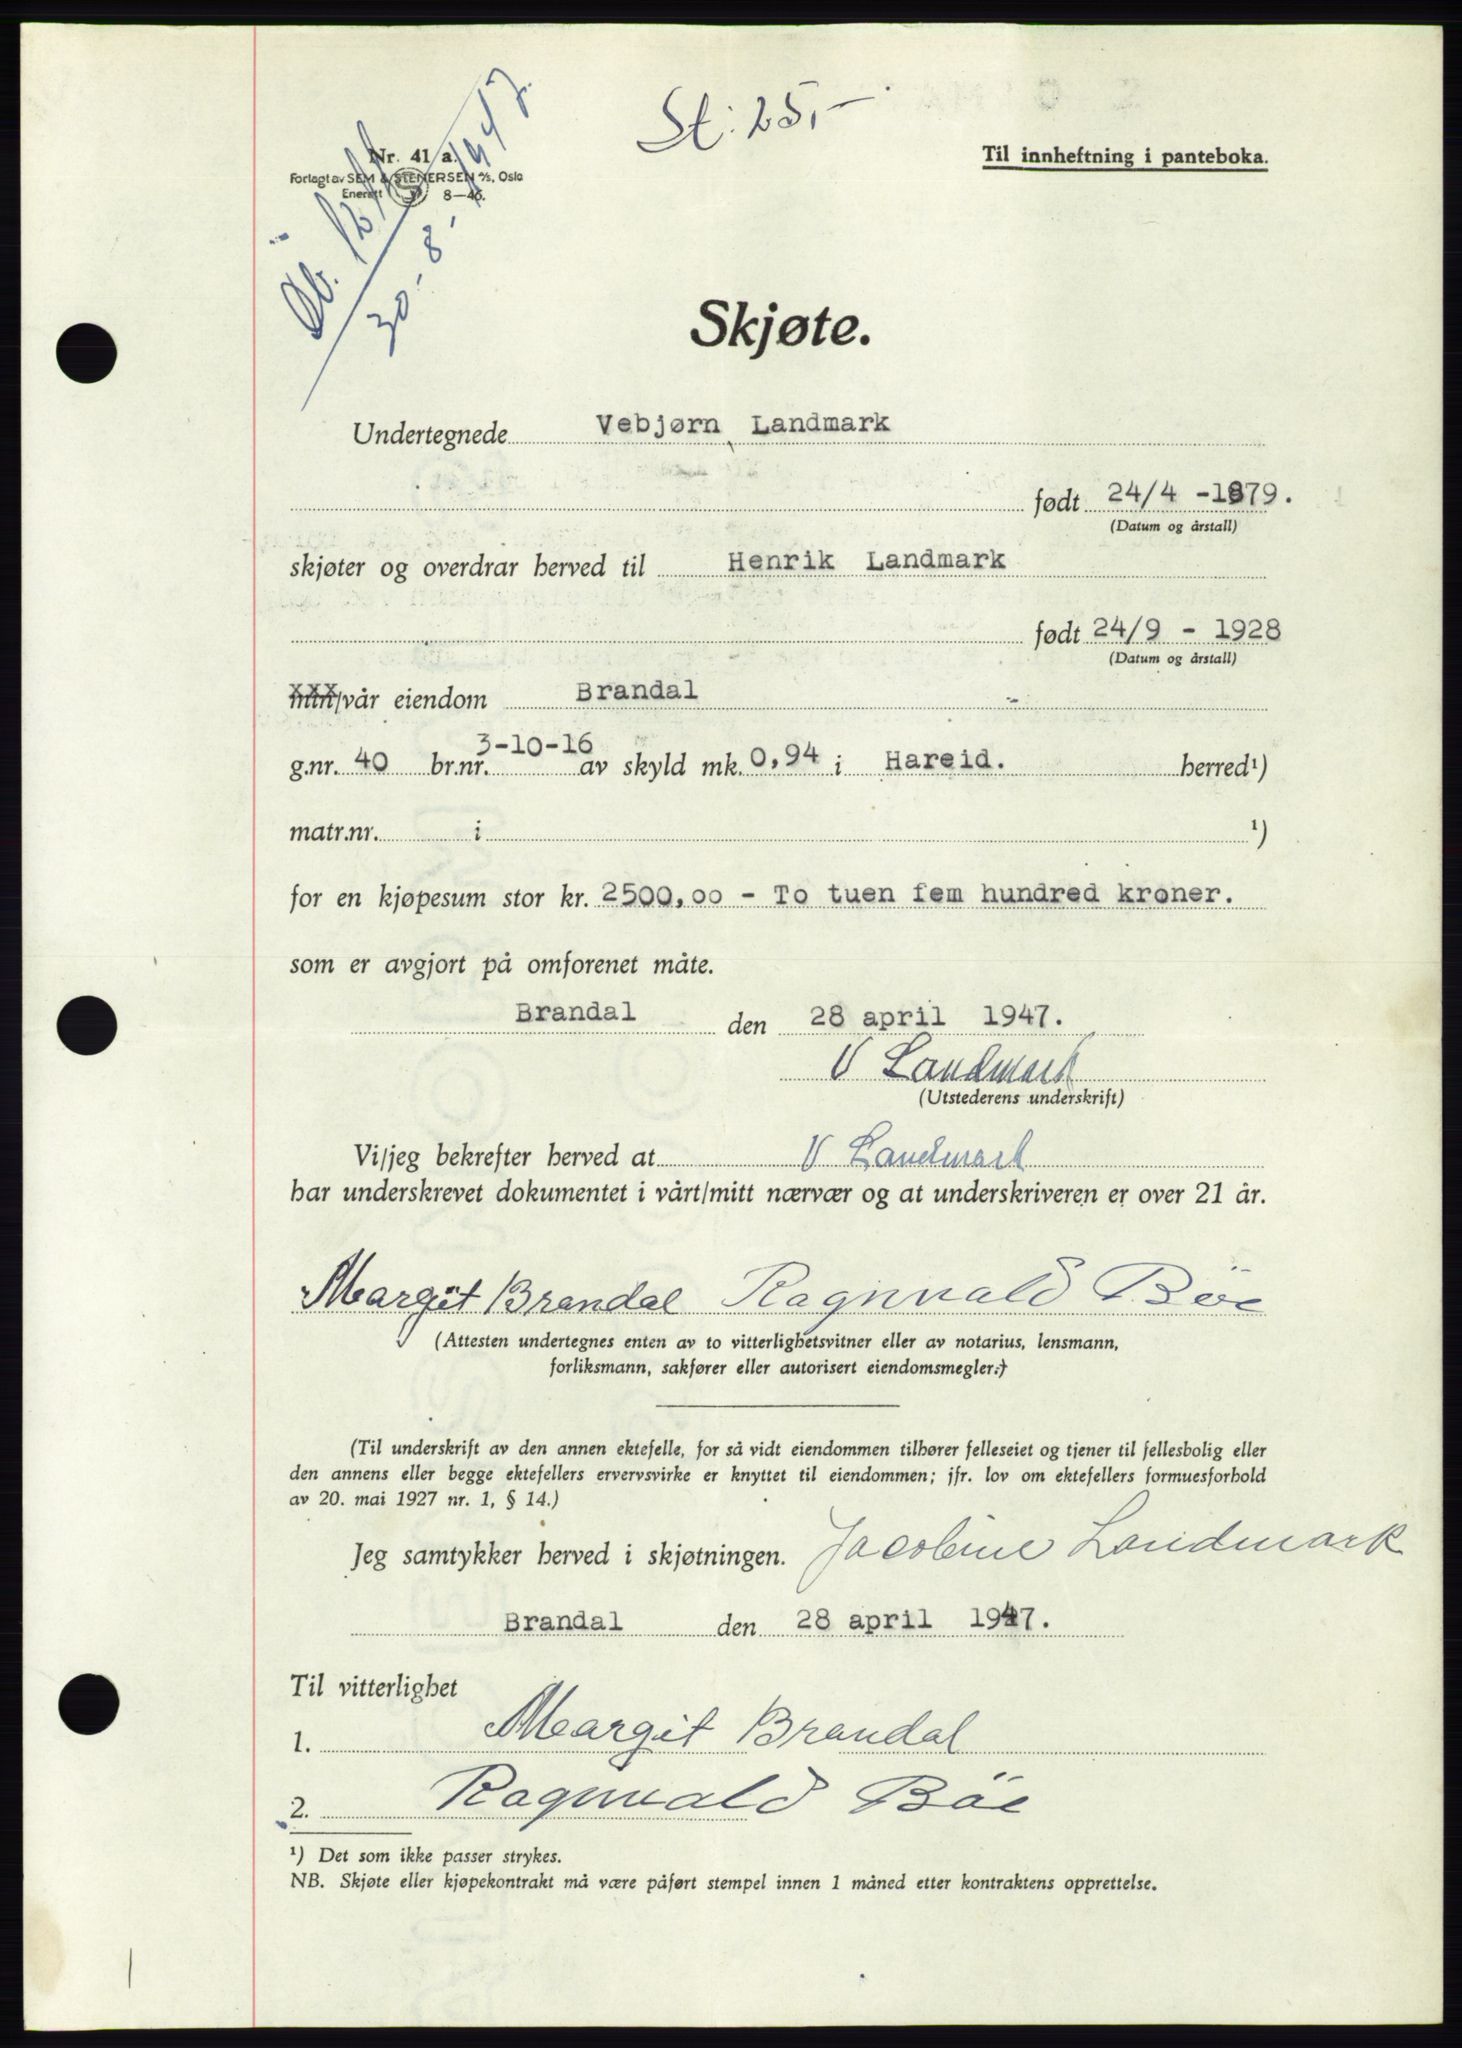 St: 25,-
Nr. 41 a.
Forlagt av SEM & STENERSEN A/S, Oslo
Enerett 8—46.
Til innheftning i panteboka.
30-8-1947.
Skjøte.
Undertegnede Vebjørn Landmark
født 24/4 -1879.
(Datum og årstall)
skjøter og overdrar herved til Henrik Landmark
født 24/9 - 1928
(Datum og årstall)
min/vår eiendom Brandal
g.nr. 40 br.nr. 3-10-16 av skyld mk. 0,94 i Hareid. herred¹)
matr.nr. i ¹)
for en kjøpesum stor kr. 2500,00 - To tuen fem hundred kroner.
som er avgjort på omforenet måte.
Brandal den 28 april 1947.
V Landmark
(Utstederens underskrift)
Vi/jeg bekrefter herved at V Landmark
har underskrevet dokumentet i vårt/mitt nærvær og at underskriveren er over 21 år.
Margit Brandal Ragnvald Böe
(Attesten undertegnes enten av to vitterlighetsvitner eller av notarius, lensmann,
forliksmann, sakfører eller autorisert eiendomsmegler.)
(Til underskrift av den annen ektefelle, for så vidt eiendommen tilhører felleseiet og tjener til fellesbolig eller
den annens eller begge ektefellers ervervsvirke er knyttet til eiendommen; jfr. lov om ektefellers formuesforhold
av 20. mai 1927 nr. 1, § 14.)
Jeg samtykker herved i skjøtningen. Jacobine Landmark
Brandal den 28 april 1947.
Til vitterlighet
1. Margit Brandal
2. Ragnvald Böe
¹) Det som ikke passer strykes.
NB. Skjøte eller kjøpekontrakt må være påført stempel innen 1 måned etter kontraktens opprettelse.